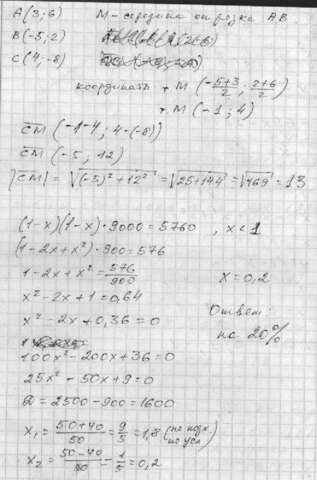 A(3;6) M-середина отрезка AB
B(-5;2)
C(4;-8)
координаты т. M (-5+3/2; 2+6/2)
т. M (-1;4)
CM (-1-4; 4-(-8))
CM (-5, 12)
|CM| = √(-5)²+12² = √25+144 = √169 = 13
(1-x)(1-x)·9000=5760 , x<1
(1-2x+x²)·900=576
1-2x+x²=576/900 x=0,2
x²-2x+1=0,64 Ответ:
x²-2x+0,36=0 на 20%
100x²-200x+36=0
25x²-50x+9=0
D=2500-900=1600
x₁=50+40/50=9/5=1,8 (не подх. по усл.)
x₂=50-40/50=1/5=0,2